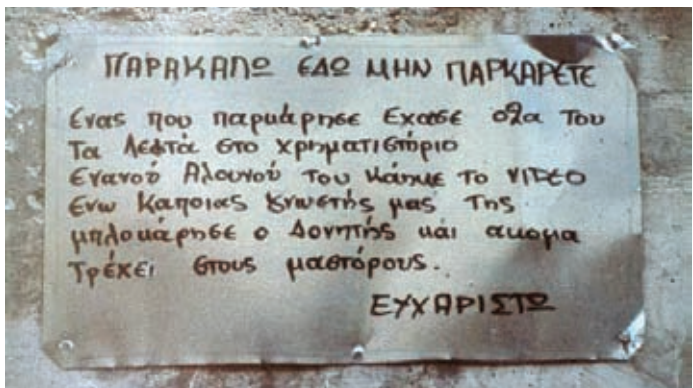 ΠΑΡΑΚΑΛΩ ΕΔΩ ΜΗΝ ΠΑΡΚΑΡΕΤΕ
Ενας που παρκάρησε Εχασε ολα Του
Τα Λεφτά στο χρηματιστήριο
Ενανού Αλουνού του κάηκε το VIDEO
Ενω Καποιας γνωστής μας της
μπλοκάρησε ο Δονητής και ακομα
Τρέχει στους μαστόρους.
ΕΥΧΑΡΙΣΤΩ